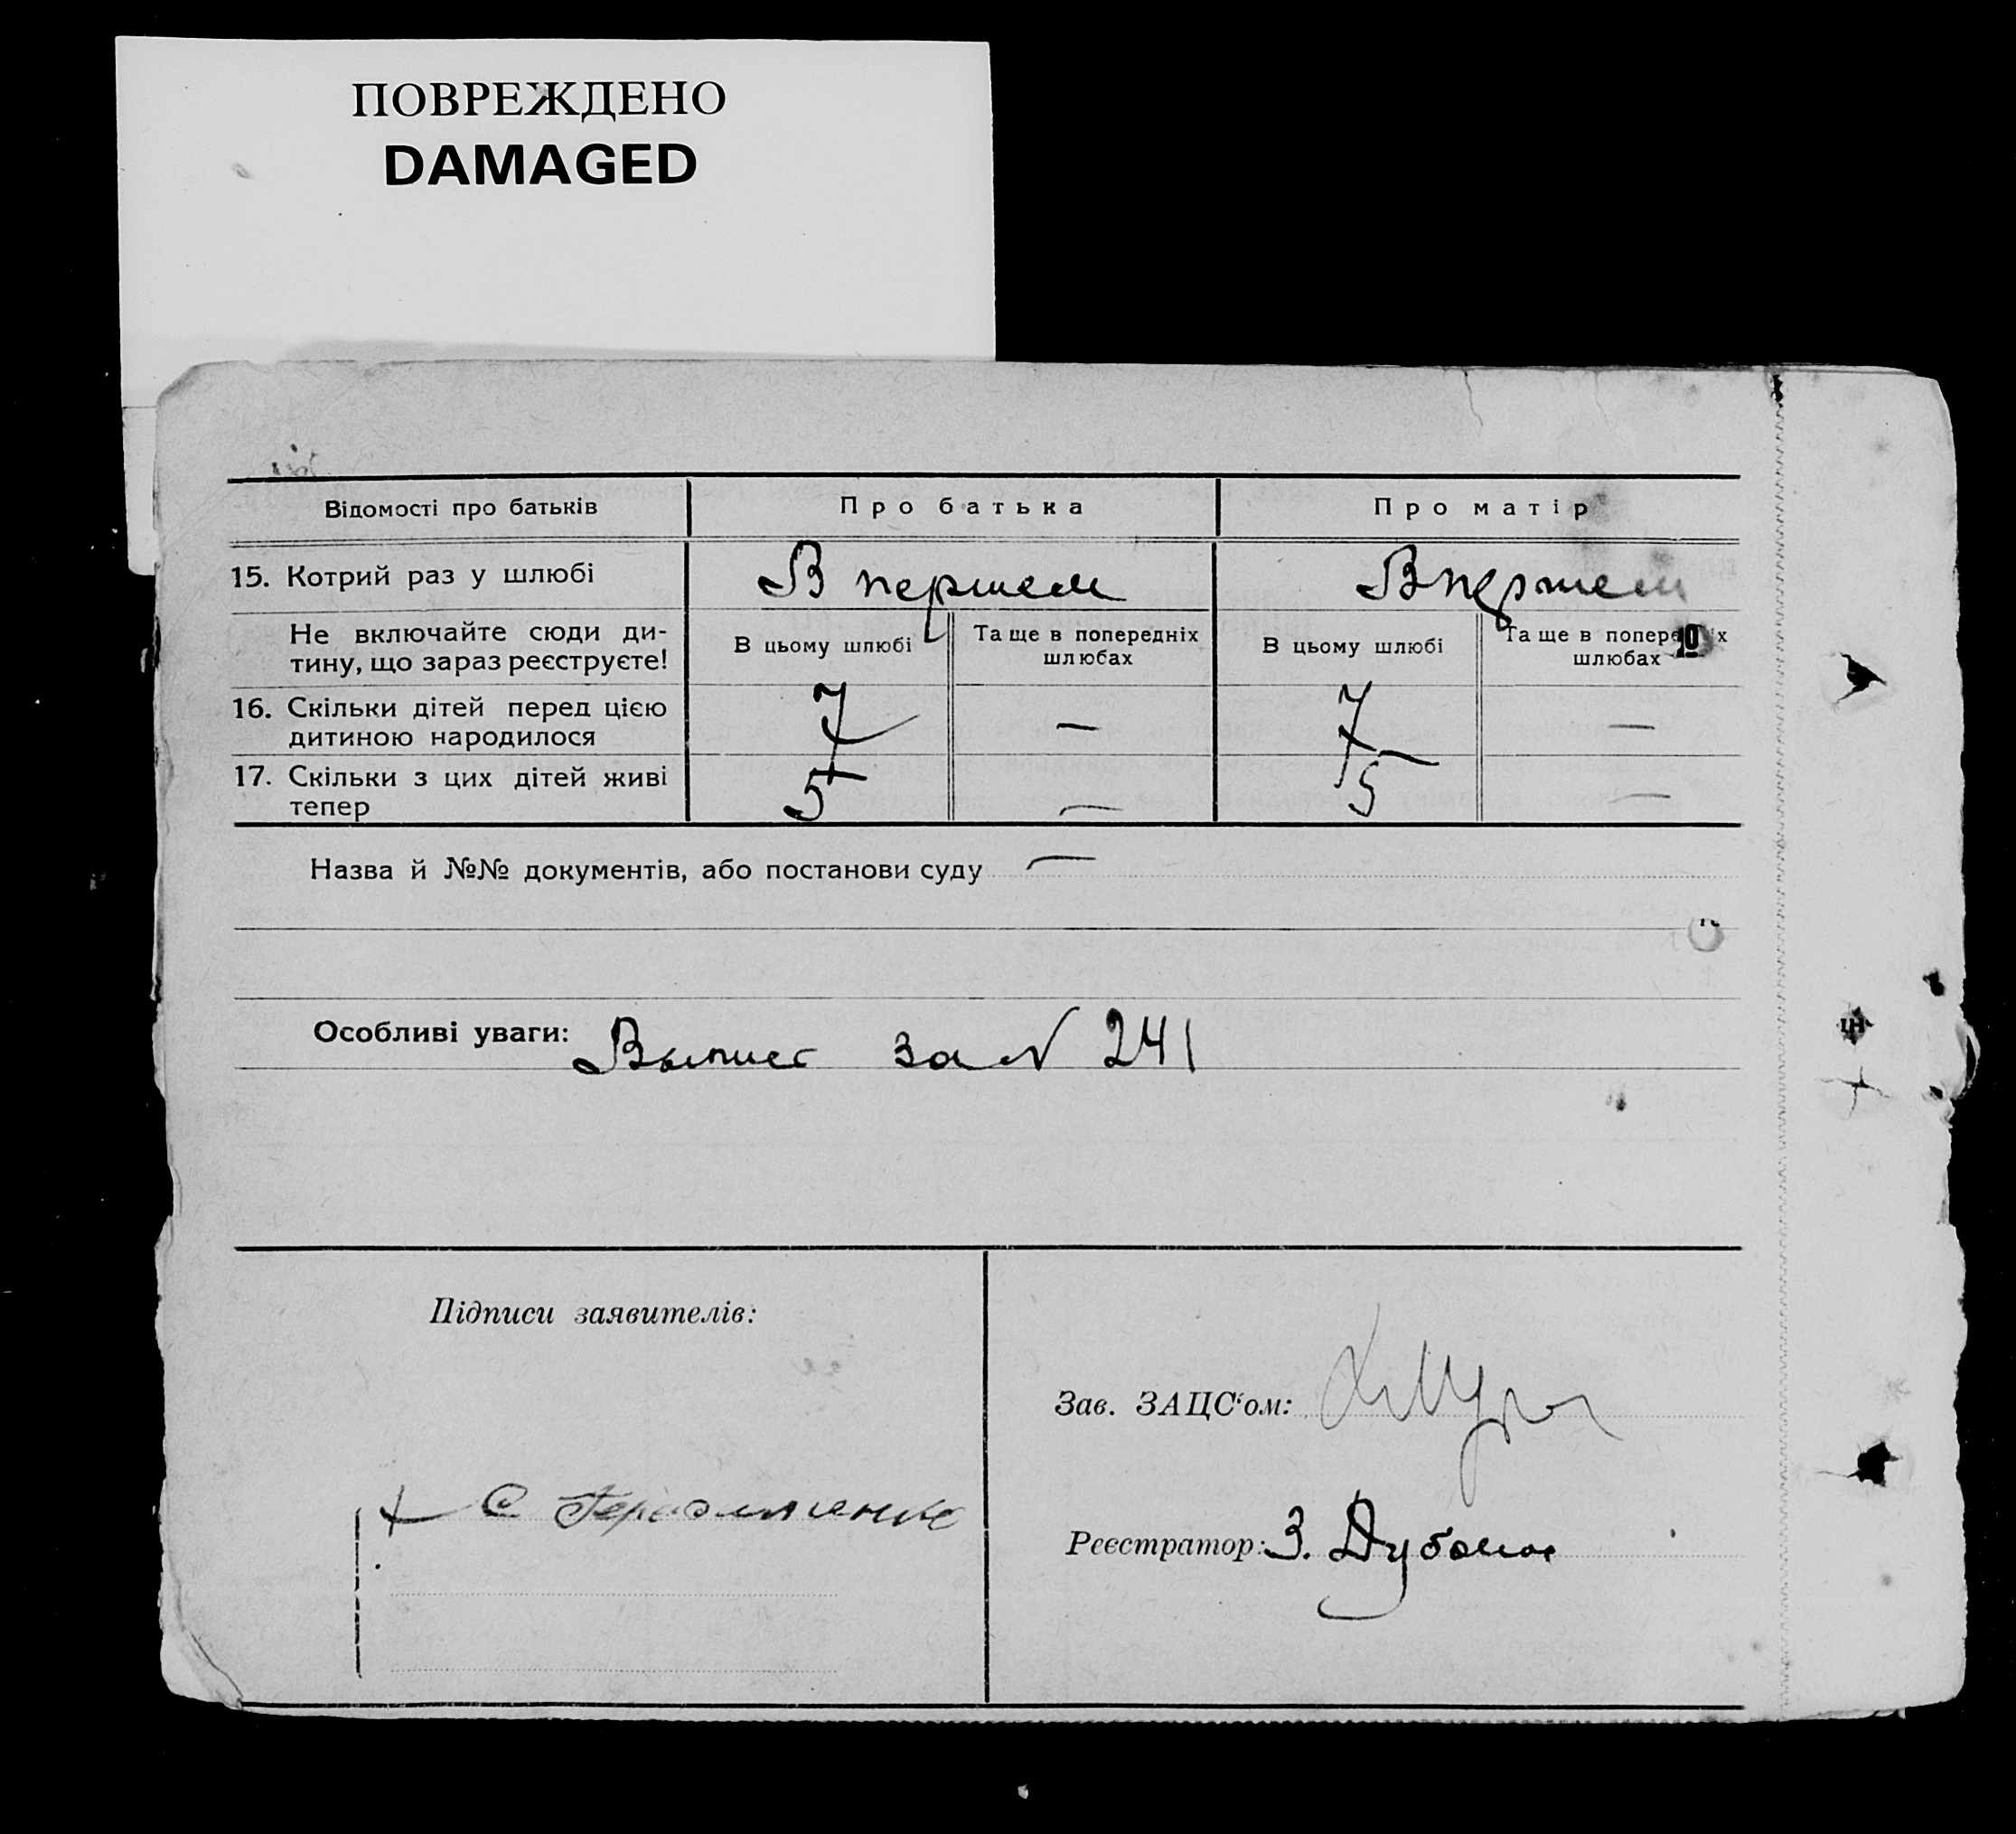 ПОВРЕЖДЕНО
DAMAGED
Відомості про батьків
Про батька
Про матір
15. Котрий раз у шлюбі
В першем
В першем
Не включайте сюди ди-
тину, що зараз реєструєте!
В цьому шлюбі
Та ще в попередніх
шлюбах
В цьому шлюбі
Та ще в попере х
шлюбах
16. Скільки дітей перед цією
дитиною народилося
7
—
7
—
17. Скільки з цих дітей живі
тепер
5
—
5
—
Назва й №№ документів, або постанови суду —
Особливі уваги: за N 241
Підписи заявителів:
Зав. ЗАЦС‘ом:
Реєстратор: З.